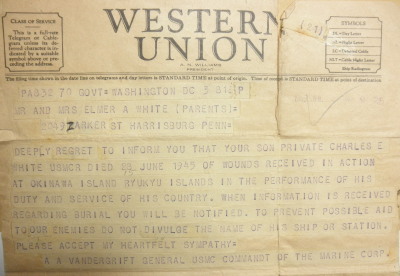 CLASS OF SERVICE
This is a full-rate
Telegram or Cable-
gram unless its de-
ferred character is in-
dicated by a suitable
symbol above or pre-
ceding the address.
WESTERN
UNION
A. N. WILLIAMS
PRESIDENT
SYMBOLS
The filing time shown in the date line on telegrams and day letters is STANDARD TIME at point of origin. Time of receipt is STANDARD TIME at point of destination
PA832 70 GOVT= WASHINGTON DC 3 P
MR AND MRS ELMER A WHITE (PARENTS)=
ST HARRISBURG PENN=
DEEPLY REGRET TO INFORM YOU THAT YOUR SON PRIVATE CHARLES E
WHITE USMCR DIED JUNE 1945 OF WOUNDS RECEIVED IN ACTION
AT OKINAWA ISLAND RYUKYU ISLANDS IN THE PERFORMANCE OF HIS
DUTY AND SERVICE OF HIS COUNTRY. WHEN INFORMATION IS RECEIVED
REGARDING BURIAL YOU WILL BE NOTIFIED. TO PREVENT POSSIBLE AID
TO OUR ENEMIES DO NOT DIVULGE THE NAME OF HIS SHIP OR STATION.
PLEASE ACCEPT MY HEARTFELT SYMPATHY=
A A VANDERGRIFT GENERAL USMC COMMANDT OF THE MARINE CORP